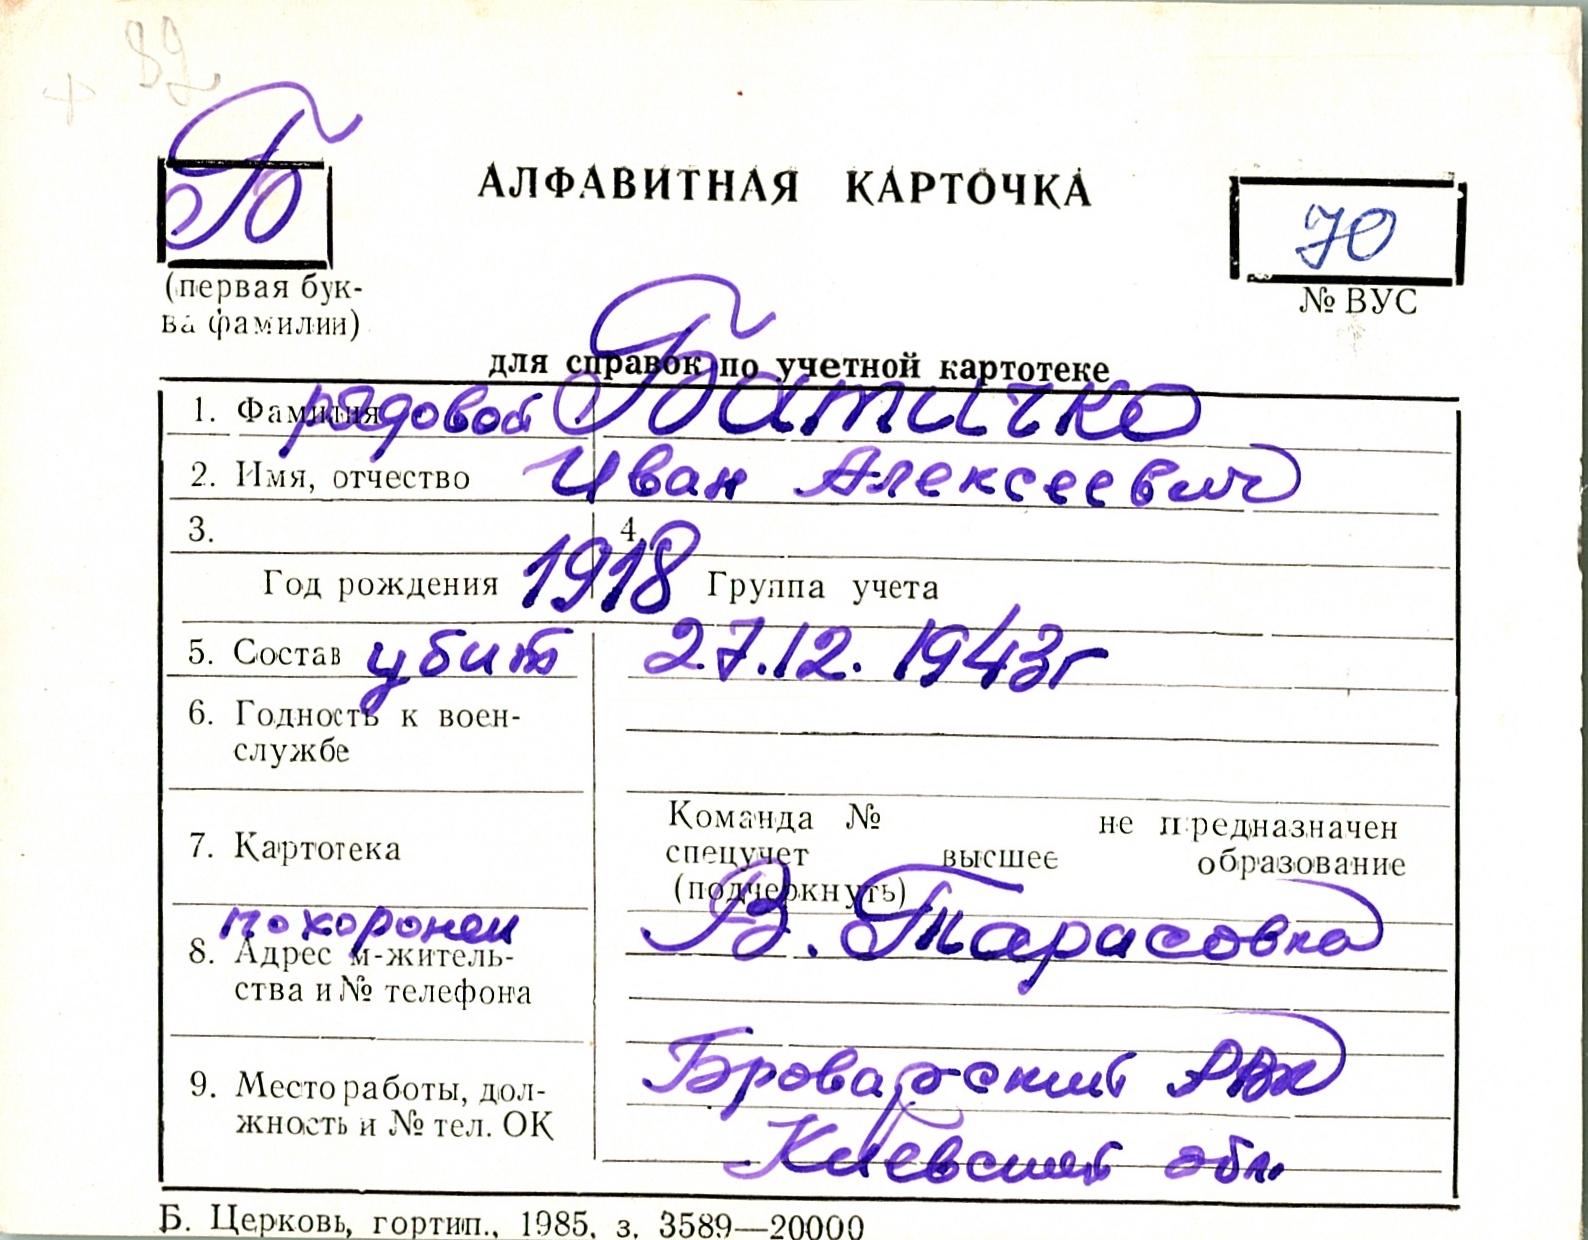 + 82
Б
АЛФАВИТНАЯ КАРТОЧКА
70
(первая бук-
ва фамилии)
№ ВУС
для справок по учетной картотеке
1. Фамилия рядовой Батичко
2. Имя, отчество Иван Алексеевич
3. 4.
Год рождения 1918 Группа учета
5. Состав убит 27.12.1943г
6. Годность к воен-
службе
Команда № не предназначен
7. Картотека спецучет высшее образование
(подчеркнуть)
похоронен В. Тарасовка
8. Адрес м-житель-
ства и № телефона
Броварский РВК
9. Место работы, дол-
жность и № тел. ОК
Киевской обл.
Б. Церковь, гортип., 1985, з. 3589—20000